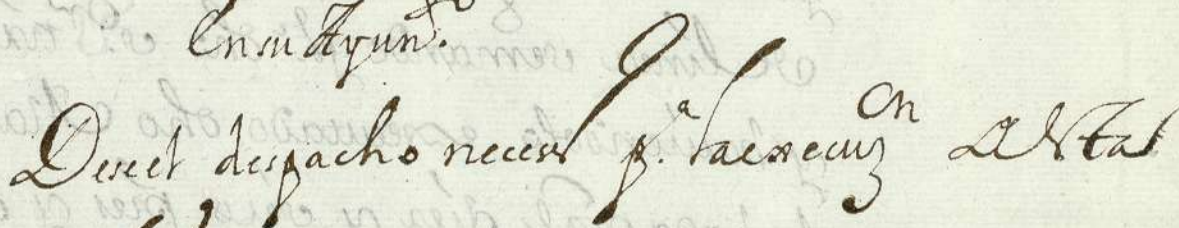 En su Ayun.to
Dese el despacho neces.o p.a la execuz.on